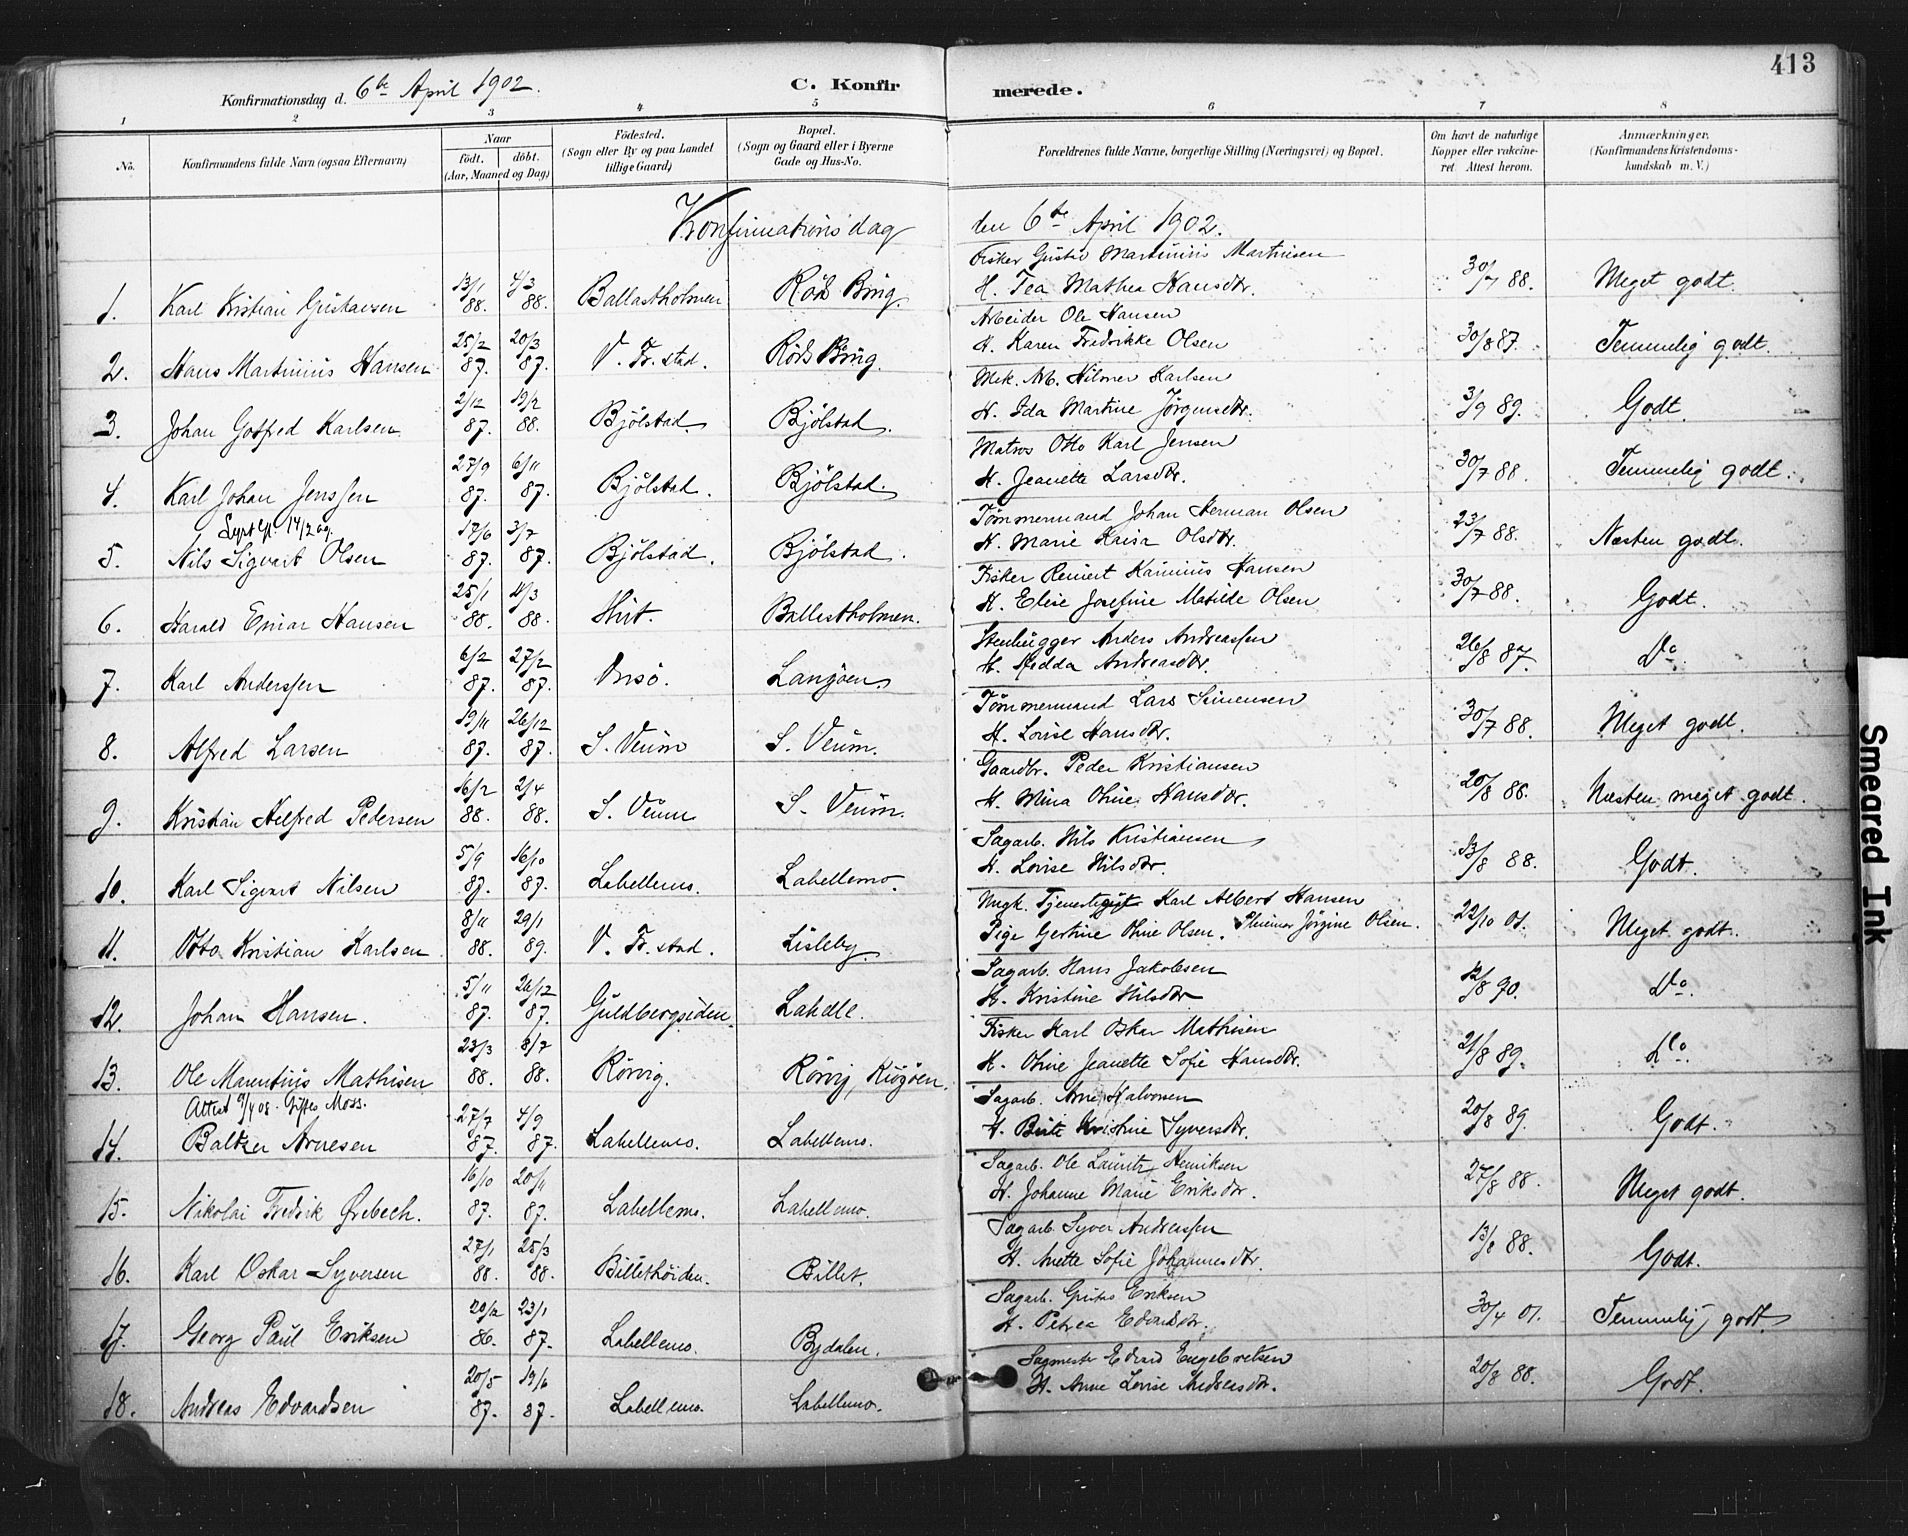 413
Konfirmationsdag d. 6te April 1902. C. Konfirmerede.
1 2 3 4 5 6 7 8
No. Konfirmandens fulde Navn (ogsaa Efternavn) Naar födt. döbt. (Aar, Maaned og Dag) Födested. (Sogn eller By og paa Landet tillige Gaard) Bopæl. (Sogn og Gaard eller i Byerne Gade og Hus-No. Forældrenes fulde Navne, borgerlige Stilling (Næringsvei) og Bopæl. Om havt de naturlige Kopper eller vakcineret Attest herom. Anmærkninger. (Konfirmandens Kristendomskundskab m. V.)
Konfirmationsdag den 6te April 1902.
Fisker Gustav Martinius Martinsen
1. Karl Kristian Gustavsen 13/1 88. 4/3 88. Ballastholmen Röds Brug. H. Tea Mathea Hansdtr. 30/7 88. Meget godt.
Arbeider Ole Hansen
2. Hans Martinius Hansen 25/2 87. 20/3 87. V. Fr.stad. Röds Brug. H. Karen Fredrikke Olsen 30/8 87. Temmelig godt.
Mek. Arb. Hilmer Karlsen
3. Johan Gotfred Karlsen 2/12 87. 19/2 88. Bjölstad. Bjölstad. H. Ida Martine Jörgensdtr. 3/9 89. Godt.
Matros Otto Karl Jensen
4. Karl Johan Jenssen 27/9 87. 6/11 87. Bjölstad. Bjölstad. H. Jeanette Larsdtr. 30/7 88. Temmelig godt.
Tømmermand Johan Herman Olsen
5. Nils Sigvart Olsen 17/6 87. 3/7 87. Bjölstad. Bjölstad. H. Marie Kaisa Olsdtr. 23/7 88. Næsten godt.
Fisker Reinert Hansen
6. Harald Einar Hansen 25/1 88. 11/3 88. Hut. Ballastholmen. H. Elise Josefine Matilde Olsen 30/7 88. Godt.
Stenhugger Anders Andreassen
7. Karl Anderssen 6/2 87. 27/2 87. Onsö. Langöen. H. Hedda Andreasdtr. 26/8 87. Do.
Tømmermand Lars Simensen
8. Alfred Larsen 19/11 87. 26/12 87. S. Veum S. Veum. H. Lovise Hansdtr. 30/7 88. Meget godt.
Gaardbr. Peder Kristiansen
9. Kristian Helfred Pedersen 16/2 88. 2/4 88. S. Veum S. Veum. H. Mina Oline Hansdtr. 20/8 88. Næsten meget godt.
Sagarb. Nils Kristiansen
10. Karl Sigvart Nilsen 5/9 87. 16/10 87. Labellemo. Labellemo. H. Lovise Nilsdtr. 13/8 88. Godt.
Ungk. Tjenestegut Karl Albert Hansen
11. Otto Kristian Karlsen 8/11 88. 29/1 89. V. Fr.stad. Lisleby. Pige Gertine Oline Olsen. Jörgine Olsen. 22/10 01. Meget godt.
Sagarb. Hans Jakobsen
12. Johan Hansen. 5/11 87. 26/12 87. Guldbergsiden. Lahelle. H. Kristine Nilsdtr 12/8 90. Do.
Fisker Karl Oskar Mathisen
13. Ole Marentius Mathisen 23/3 88. 8/7 88. Rörvig. Rörvig, Kjøgöen. H. Oline Jeanette Sofie Hansdtr. 21/8 89. Do.
Attest 9/4 08. Giftes Moss. Sagarb. Arne Halvorsen
14. Baltzer Arnesen 27/7 87. 4/9 87. Labellemo. Labellemo. H. Berte Kristine Syversdtr. 20/8 89. Godt.
Sagarb. Ole Lauritz Henriksen
15. Nikolai Fredrik Ørebech. 16/10 87. 20/11 87. Labellemo. Labellemo. H. Johanne Marie Eriksdtr. 27/8 88. Meget godt.
Sagarb. Syver Andreassen
16. Karl Oskar Syversen 27/1 88. 25/3 88. Billethöiden. Billet. H. Anette Sofie Johannesdtr. 13/8 88. Godt.
Sagarb. Gustav Eriksen
17. Georg Paul Eriksen 20/12 86. 23/1 87. Labellemo. Bydalen. H. Petrea Edvardsdtr. 30/4 01. Temmelig godt
Sagmester Edvard Engebretsen
18. Andreas Edvardsen 20/5 87. 19/6 87. Labellemo. Labellemo. H. Anne Lovise Andreasdtr. 20/8 88. Godt.
Smeared Ink